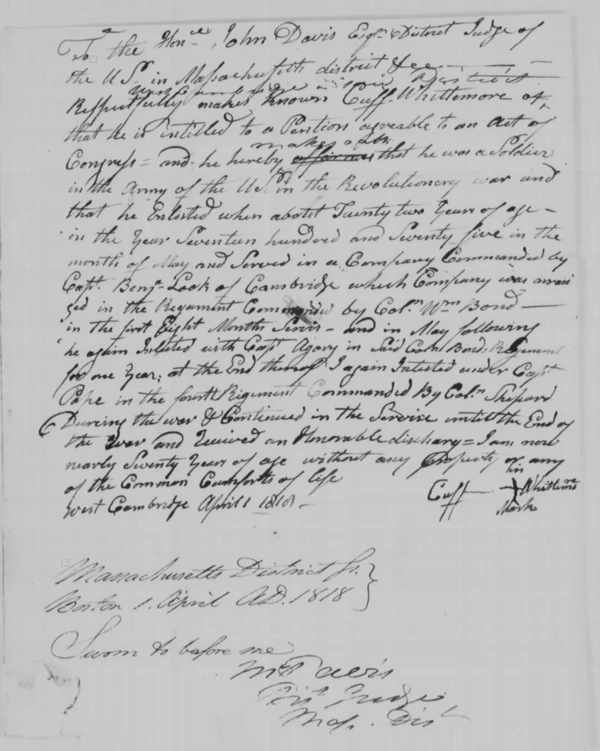 To the Honle John Davis Esqr District Judge of
the U.S. in Massachusetts district &c
Respectfully makes Known Cuff Whittemore of
that he is intitled to a Pention agreable to an Act of
makes oath
Congress = and he hereby affirms that he was a Soldier
in the Army of the U.S. in the Revolutionery war and
that he Enlisted when about Twenty two Year of age –
in the Year Seventeen hundred and Seventy five in the
month of May and Served in a Company Commanded by
Capt. Benjn Lock of Cambridge which Company was arran
ged in the Regament Commanded by Coln Wm Bond —
in the first Eight Months Servis – and in May following
he again Inlisted with Capt Agary in Said Coln Bond, Regiment
for one Year; at the End thereof I again Inlisted under Capt
Pope in the fourth Rigament Commanded By Coln Shepard
Dureing the war & Continued in the Servise untill the End of
the war and Received an Honorable discharg = I am now
nearly Seventy Year of age without any Property or any
of the Common Cumforts of life
his
Cuff + Whittemore
Mark
West Cambridge April 1 1818 –
Massachusetts District Ss. }
Boston 1. April A.D. 1818
Sworn to before me
Davis
Dist Judge
Mass. Dist